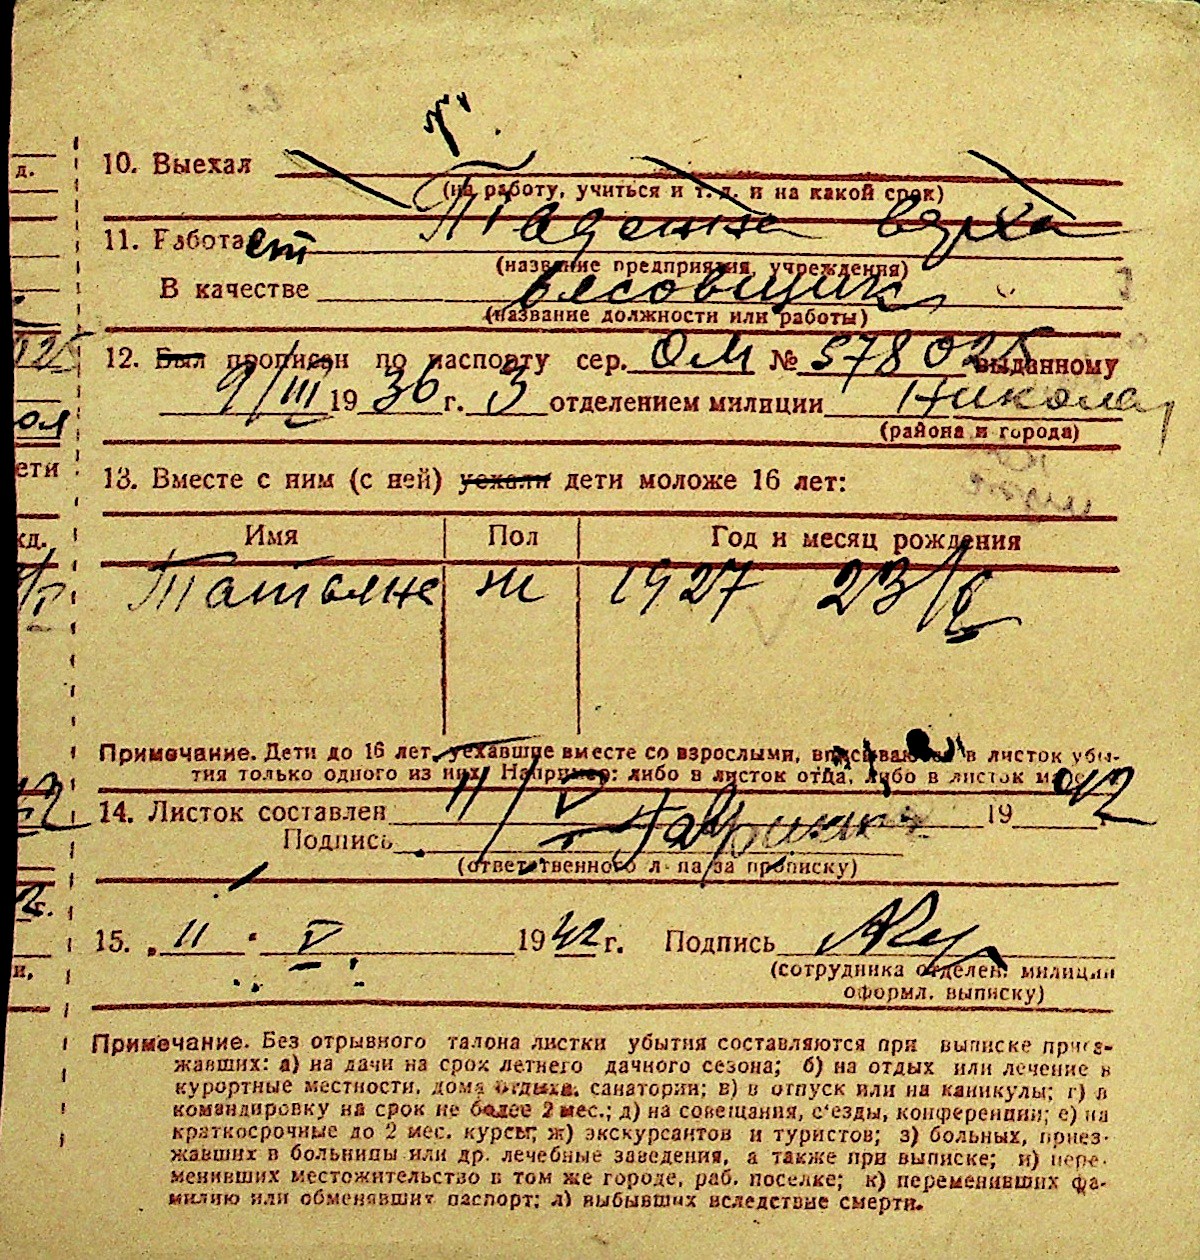 10. Выехал
(на работу, учиться и т. д. и на какой срок)
11. Работает
(название предприятия, учреждения)
В качестве весовщик
(название должности или работы)
12. Был прописан по паспорту сер. ОМ № 578025 выданному
9/III 1936 г. 3 отделением милиции Никола
(района и города)
13. Вместе с ним (с ней) уехали дети моложе 16 лет:
Имя Пол Год и месяц рождения
Татьяна ж 1927 23/
Примечание. Дети до 16 лет, уехавшие вместе со взрослыми, вписываются в листок убы-
тия только одного из них. Например: либо в листок отца, либо в листок мате
14. Листок составлен 11/V 1942
Подпись
(ответственного л-ца за прописку)
15. „11" V 1942 г. Подпись
(сотрудника отделен. милиции
оформл. выписку)
Примечание. Без отрывного талона листки убытия составляются при выписке приез-
жавших: а) на дачи на срок летнего дачного сезона; б) на отдых или лечение в
курортные местности, дома отдыха, санатории; в) в отпуск или на каникулы; г) в
командировку на срок не более 2 мес.; д) на совещания, с'езды, конференции; е) на
краткосрочные до 2 мес. курсы; ж) экскурсантов и туристов; з) больных, приез-
жавших в больницы или др. лечебные заведения, а также при выписке; и) пере-
менивших местожительство в том же городе, раб. поселке; к) переменивших фа-
милию или обменявших паспорт; л) выбывших вследствие смерти.